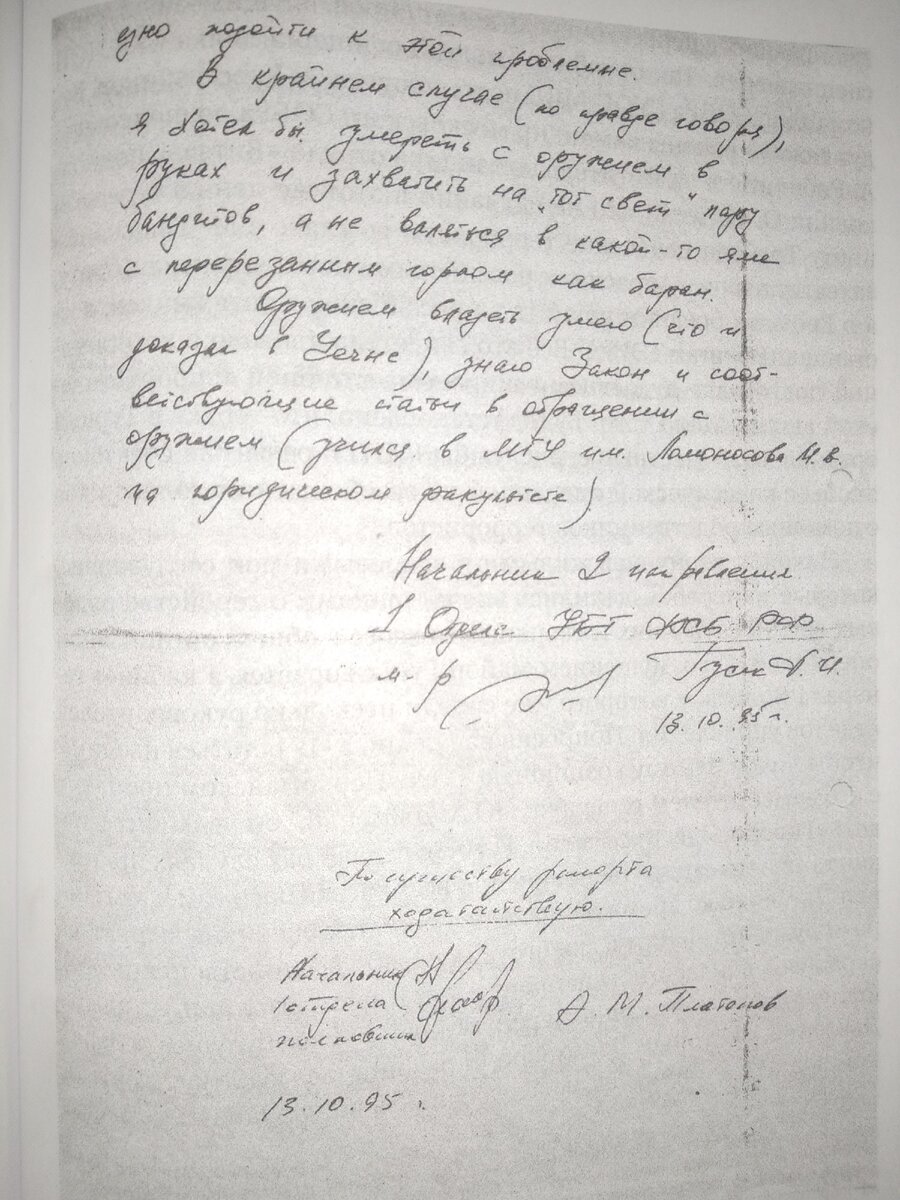 езно подойти к этой проблемне.
В крайнем случае (по правде говоря),
я хотел бы умереть с оружием в
руках и захватить на "тот свет" пару
бандитов, а не валяться в какой-то яме
с перерезанным горлом как баран.
Оружием владеть умею (что и
доказал в Чечне), знаю Закон и соот-
ветствующие статьи в обращении с
оружием (учился в МГУ им. Ломоносова М.В.
на юридическом факультете)
Начальник 2 направления
1 Отдела УБТ ФСБ РФ
м-р Гусак А.И.
13.10.95 г.
По существу рапорта
ходатайствую.
Начальник
1 отдела
полковник А. М. Платонов
13.10.95 г.